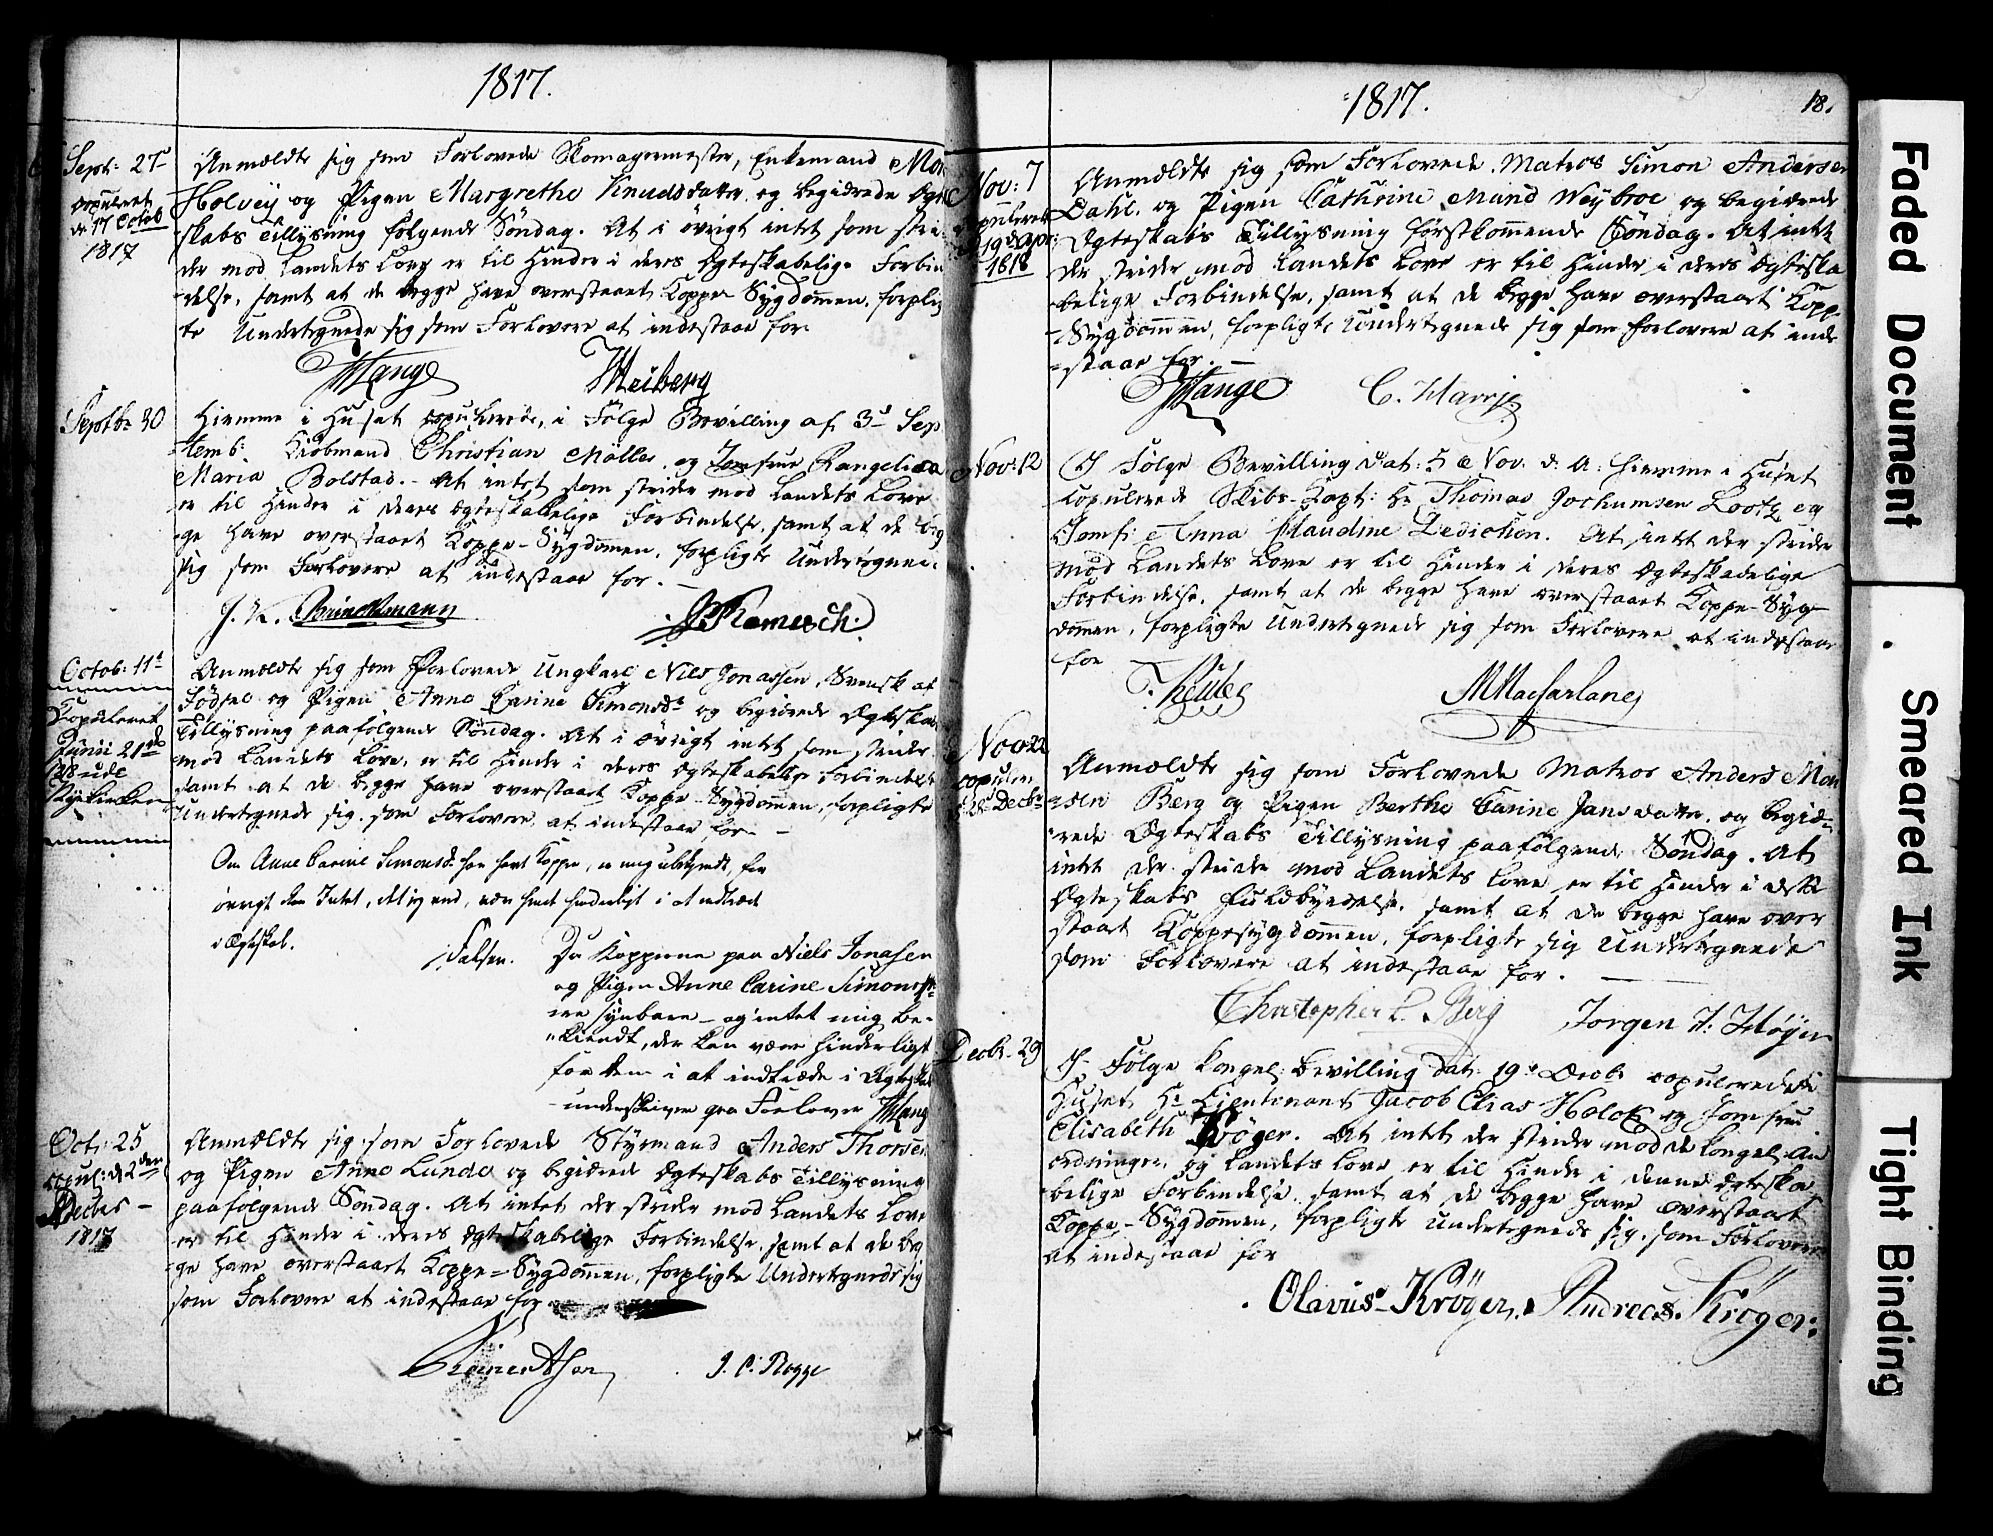 1817.
Sept: 27d
copuleret
d. 17 Octob
1817
Anmældte sig som Forlovede Skomagermester, Enkemand
Holvey og Pigen Margrethe Knudsdatter, og begiærede Ægte
skabs Tillysning følgende Söndag. At i övrigt intet som stri-
der mod Landets Love er til Hinder i deres Ægteskabelige Forbin
delse, samt at de begge have overstaaet Koppe Sygdommen, forplig
te Undertegnede sig som Forlovere at indestaae for.
Heiberg
Septbr 30
Hiemme i Huset copulerede, i Følge Bevilling af 3d Sep
temb: Kiöbmand Christian Möller og Jomfrue Rangelia
Maria Bolstad. - At intet som strider mod Landets Love
er til Hinder i deres Ægteskabelige Forbindelse, samt at de beg
ge have overstaaet Koppe-Sygdommen, forpligte Undertegnede
sig som Forlovere at indestaae for. -
J. K. Brinckmann
Octob: 11t
Copuleret
Junii 21de
Anmældte sig som Forlovede Ungkarl Nils Jonassen, Svensk af
Födsel og Pigen Anne Carine Simonsdr og begiærede Ægteskabs
Tillysning paafølgende Söndag. At i övrigt intet som strider
mod Landets Love, er til Hinder i deres Ægteskabelige Forbindelse
samt at de begge have overstaaet Koppe-Sygdommen, forpligte
Undertegnede sig som Forlovere at indestaae for. -
Om Anne Carine Simonsdr har havt Kopper, er mig ubekjendt, for
övrigt Intet, mig hinderligt i at indtræde
i Ægteskab.
Falsen.
Da Kopperne paa Niels Jonasen
og Pigen Anne Carine Simonsdr
ere synbare - og intet mig be-
kiendt, der kan være hinderligt
for dem i at indtræde i Ægteskab
underskriver som Forlover
Oct: 25
copul: d: 2den
Decbr -
1817
Anmældte sig som Forlovede Styrmand Anders Thorsen
og Pigen Anne Lunde og begiærede Ægteskabs Tillysning
paafølgende Söndag. At intet der strider mod Landets Love
er til Hinder i deres Ægteskabelige Forbindelse, samt at de beg
ge have overstaaet Koppe-Sygdommen, forpligte Undertegnede sig
som Forlovere at indestaae for
1817.
18.
Nov: 7
copuleret
1818
Anmældte sig som Forlovede Matros Simon Andersen
Dahl og Pigen Cathrine Maind Weybroe og begiærede
Ægteskabs Tillysning førstkommende Söndag. At intet
der strider mod Landets Love er til Hinder i deres Ægteska
belige Forbindelse, samt at de begge have overstaaet Kopp
Sygdommen, forpligte Undertegnede sig som Forlovere at inde
staae for. -
Nov: 12
I Følge Bevilling Dat: 5 Nov. d. A: hiemme i Huset
Copulerede Skibs-Capt: Hr Thomas Jochumsen Lootz og
Jomfr Anna Claudine Dedichen. At intet der strider
mod Landets Love er til Hinder i deres Ægteskabelige
Forbindelse, samt at de begge have overstaaet Koppe-Syg-
dommen, forpligte Undertegnede sig som Forlovere at indestaae
for
MMacfarlane
Nov 22
copuler
Decbr
Anmældte sig som Forlovede Matros Anders Mon
sen Berg og Pigen Berthe Carine Jansdatter, og begiæ-
rede Ægteskabs Tillysning paafølgende Söndag. At
intet der strider mod Landets Love er til Hinder i dette
Ægteskabs Fuldbyrdelse, samt at de begge have over
staaet Koppesygdommen, forpligte sig Undertegnede
som Forlovere at indestaae for. -
Christopher L. Berg
Jorgen H: Höyer
Decbr. 29
I Følge Kongel: Bevilling Dat: 19de Decbr copulerede i
Huset Hr Lieutenant Jacob Elias Holck og Jomfrue
Elisabeth Kröger. At intet der strider mod de Kongel: An
ordninger og Landets Love er til Hinder i denne Ægteska
belige Forbindelse, samt at de begge have overstaaet
Koppe-Sygdommen, forpligte Undertegnede sig som Forlovere
at indestaae for
Olavus Kröger. Andreas Kröger:
Faded Document
Smeared Ink
Tight Binding